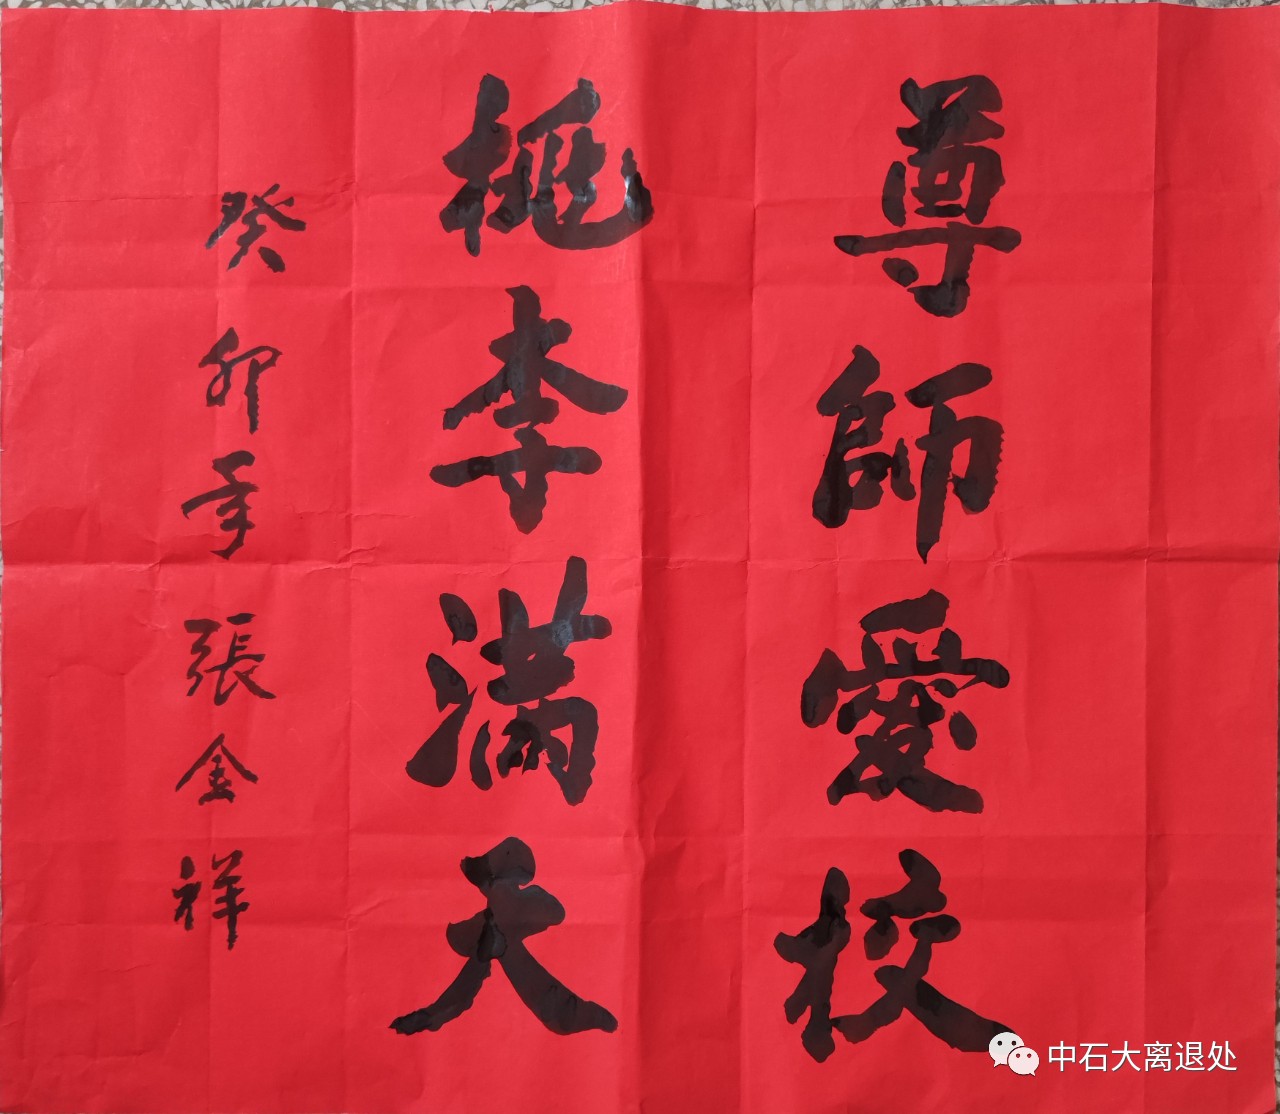 尊師愛校
桃李满天
癸卯年張金祥
中石大离退处